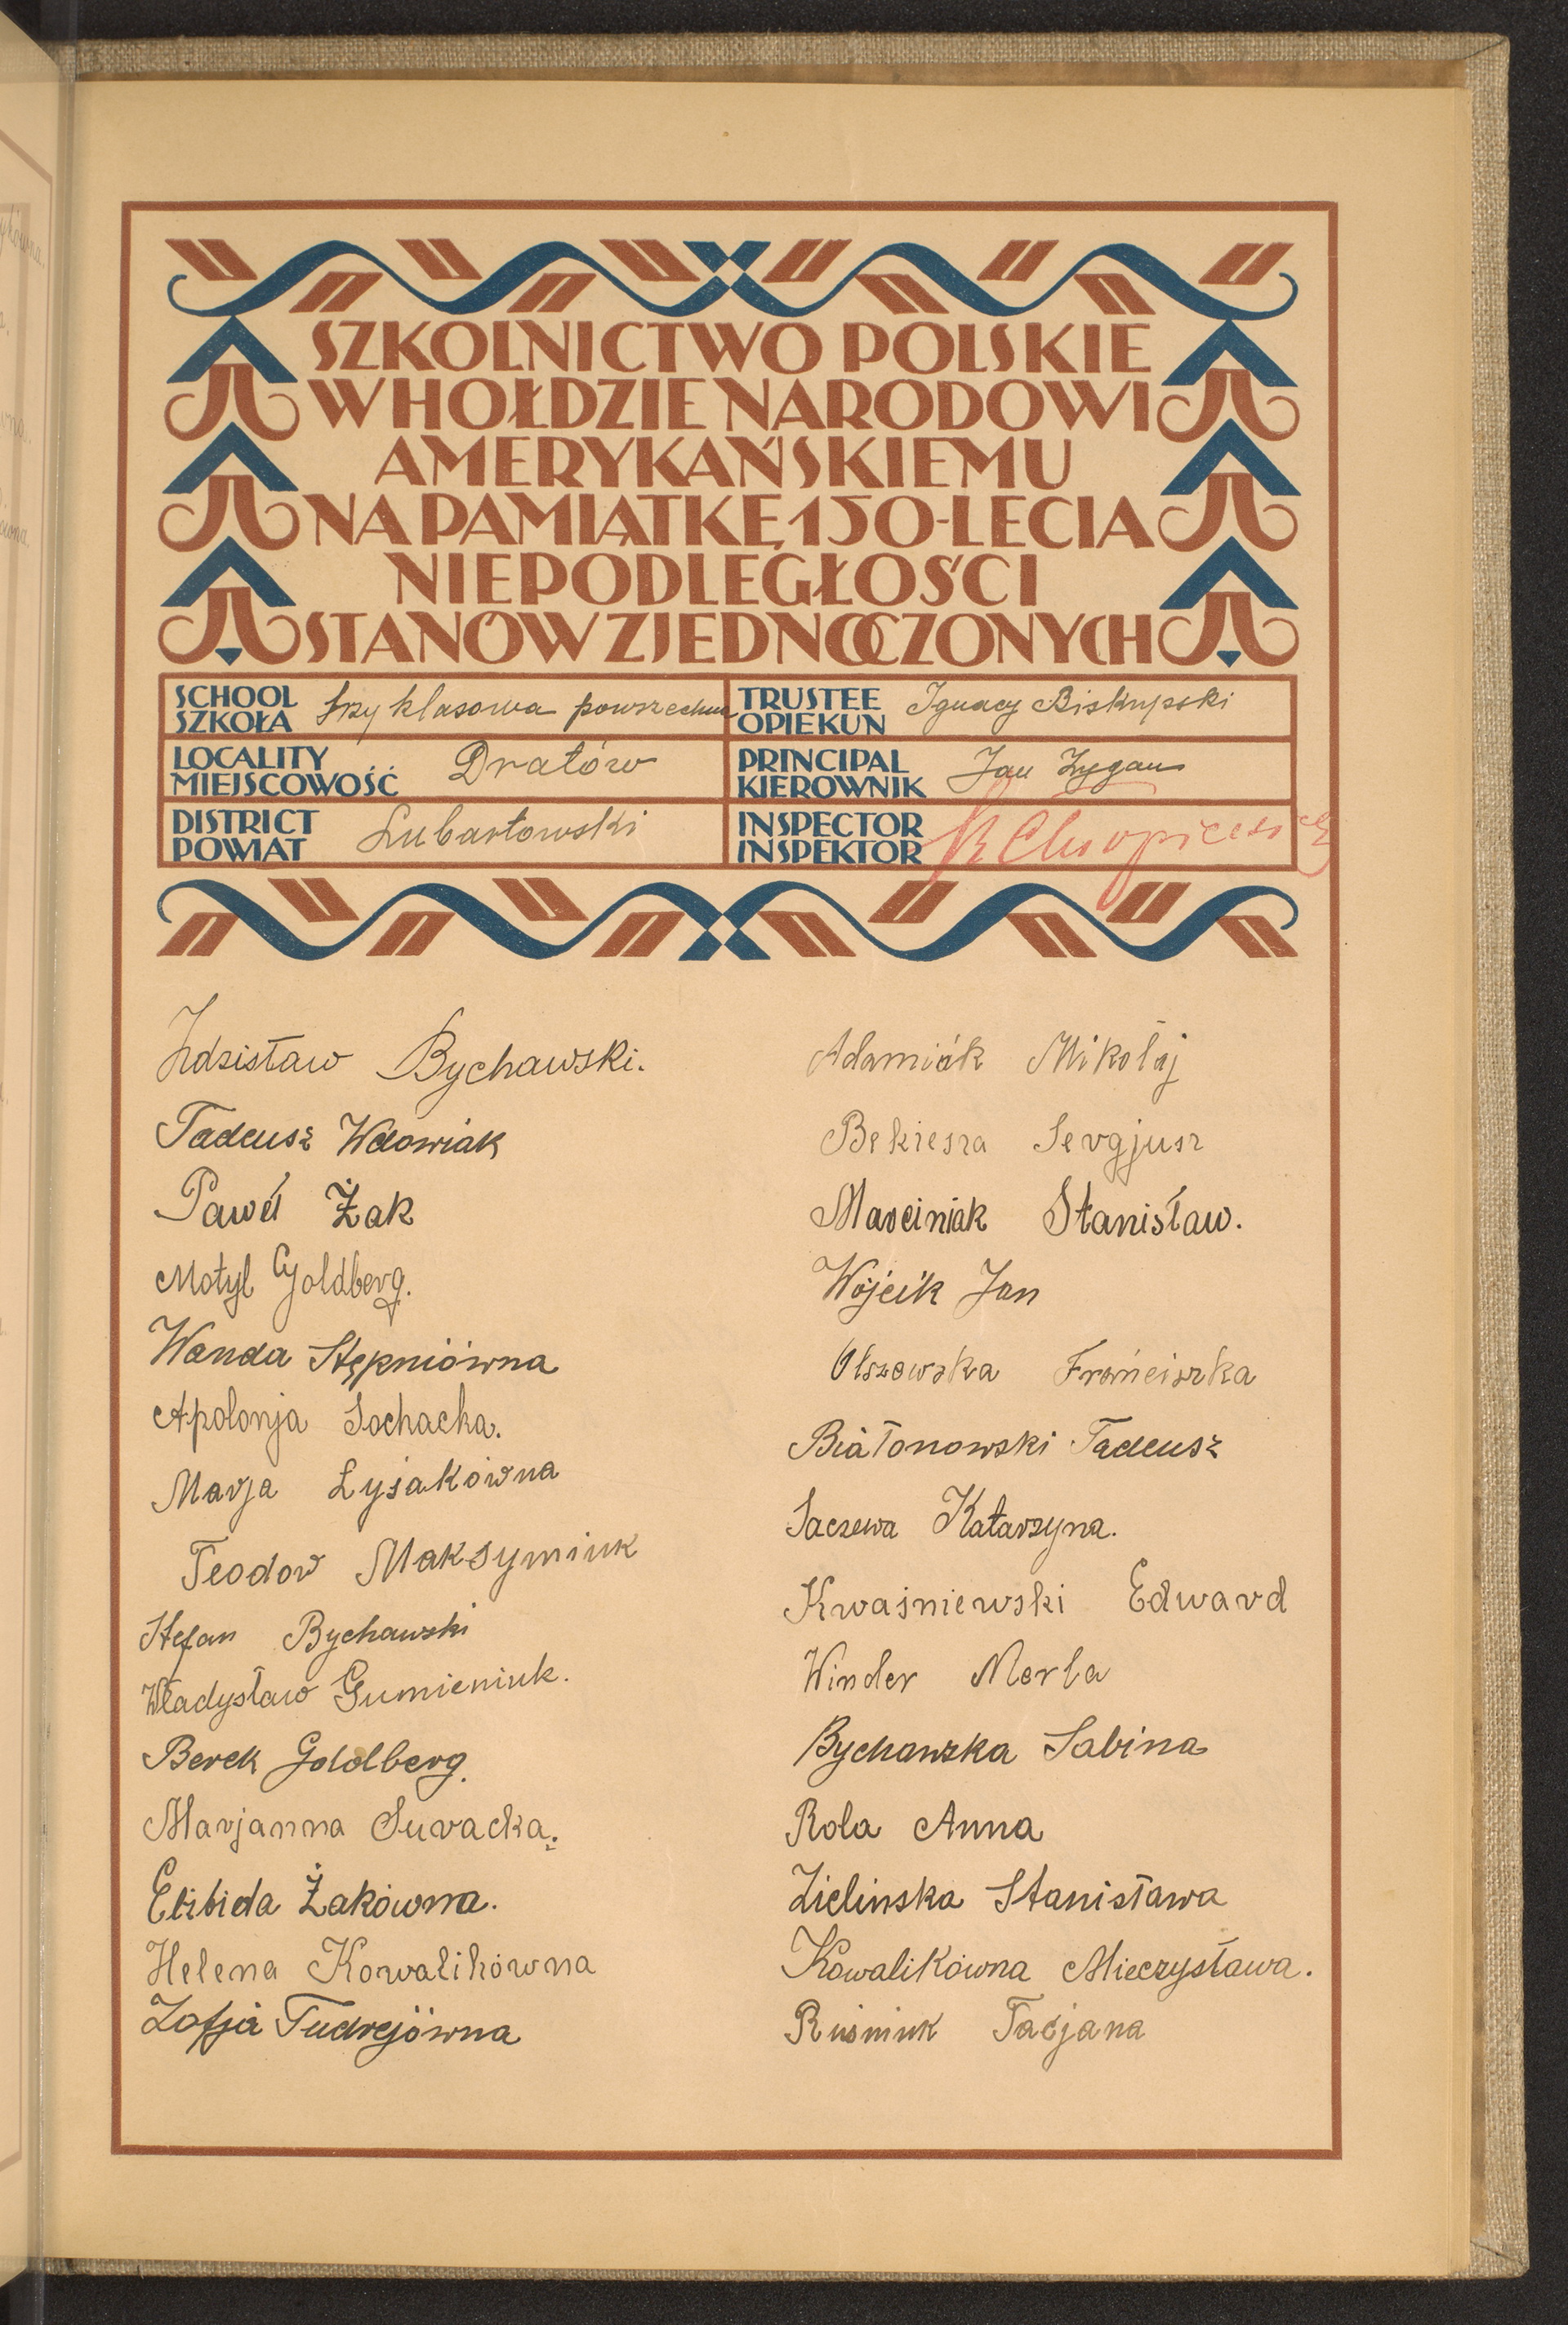 SZKOLNICTWO POLSKIE
W HOŁDZIE NARODOWI
AMERYKAŃSKIEMU
NA PAMIĄTKĘ 150-LECIA
NIEPODLEGŁOŚCI
STANÓW ZJEDNOCZONYCH
SCHOOL
SZKOŁA
trzy klasowa powszechna
TRUSTEE
OPIEKUN
Ignacy Biskupski
LOCALITY
MIEJSCOWOŚĆ
Dratów
PRINCIPAL
KIEROWNIK
Jan Zygan
DISTRICT
POWIAT
Lubartowski
INSPECTOR
INSPEKTOR
Zdzisław Bychawski.
Tadeusz Wdowiak
Paweł Żak
Motyl Goldberg.
Wanda Stępniówna
Apolonja Sochacka.
Marja Łysakówna
Teodor Maksymiuk
Stefan Bychawski
Władysław Gumieniuk.
Berek Goldberg.
Marjanna Suracka.
Elżbida Żakówna.
Helena Kowalikówna
Zofja Tudrejówna
Adamiak Mikołaj
Bekiesza Sergjusz
Marciniak Stanisław.
Wójcik Jan
Olszowska Franciszka
Białonowski Tadeusz
Saczewa Katarzyna.
Kwaśniewski Edward
Winder Merla
Bychawska Sabina
Rola Anna
Zielinska Stanisława
Kowalikówna Mieczysława.
Ruśniuk Tacjana